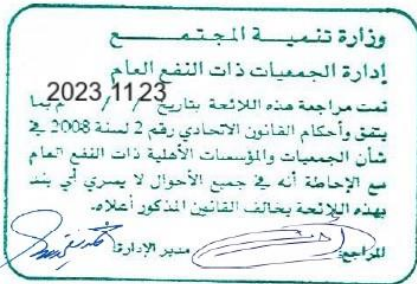 وزارة تنميــة المجتمــــع
إدارة الجمعيات ذات النفع العام
تمت مراجعة هذه اللائحة بتاريخ 2023 / 11 / 23 م بما
يتفق وأحكام القانون الاتحادي رقم 2 لسنة 2008 في
شأن الجمعيات والمؤسسات الأهلية ذات النفع العام
مع الإحاطة أنه في جميع الأحوال لا يسري أي بند
بهذه اللائحة يخالف القانون المذكور أعلاه.
المراجع: مدير الإدارة: